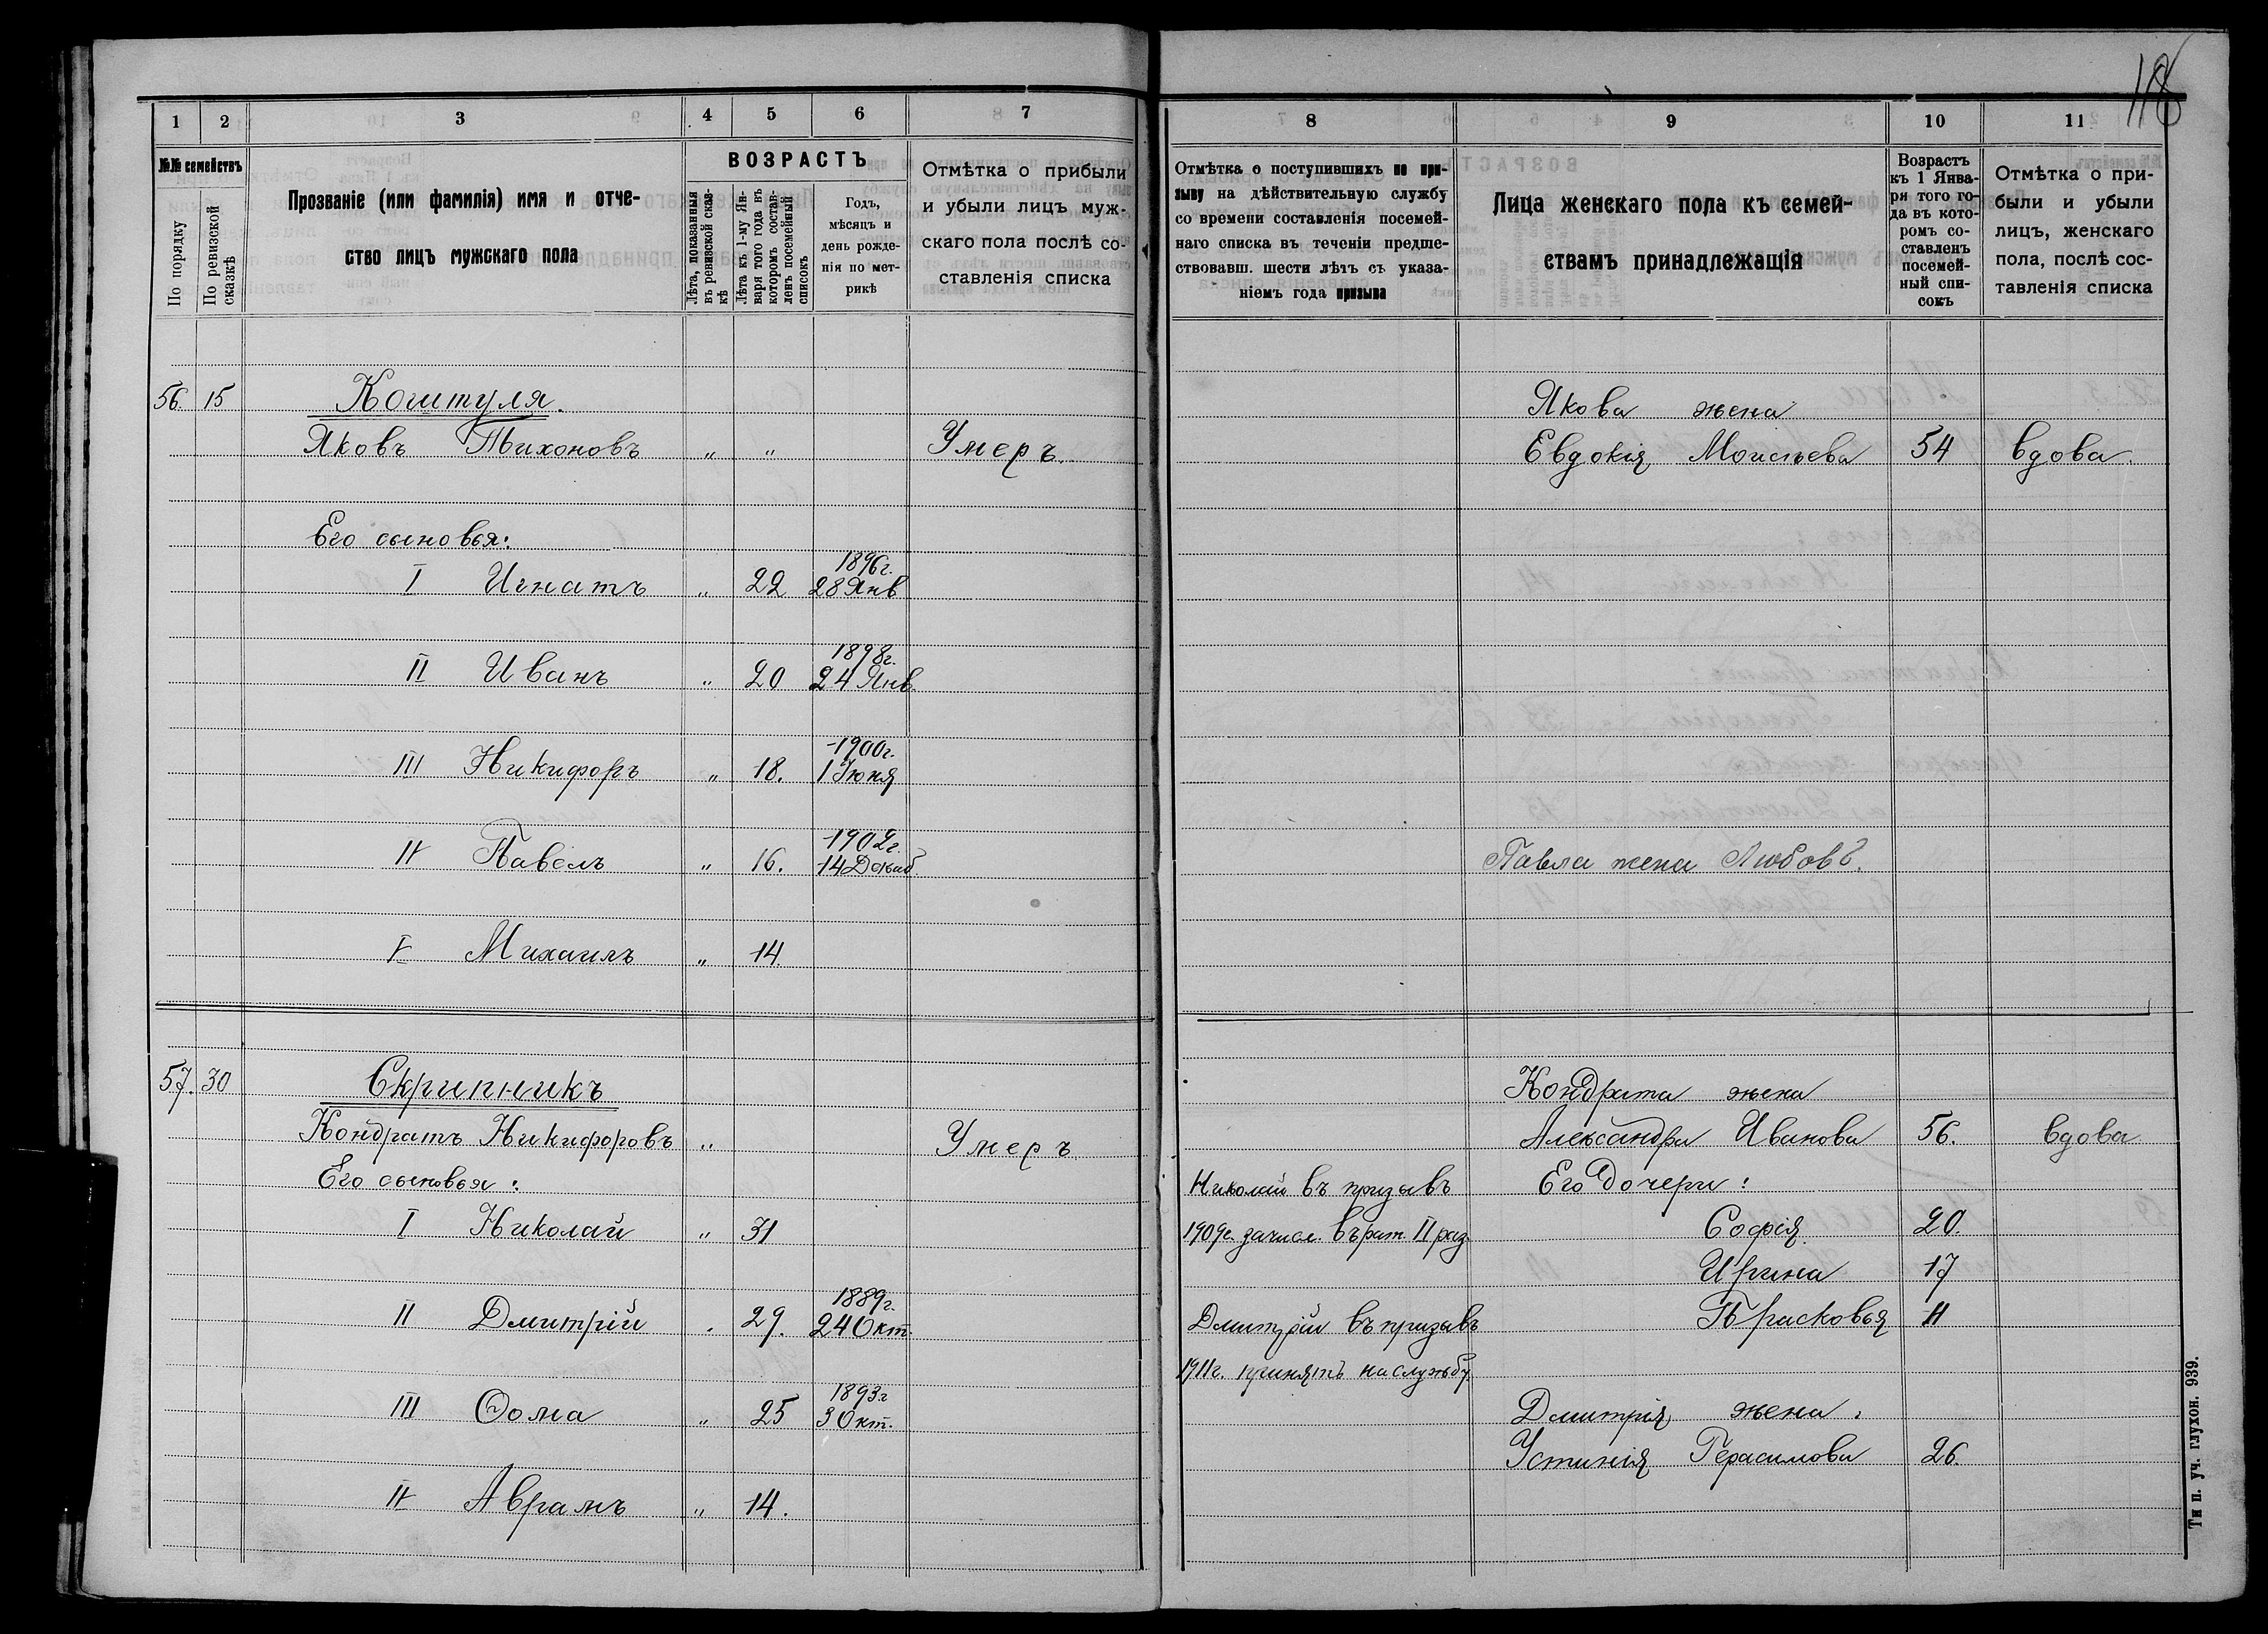 118
1 2 3 4 5 6 7
№№ семействъ
По порядку
По ревизской сказкѣ
Прозваніе (или фамилія) имя и отче-
ство лицъ мужскаго пола
ВОЗРАСТЪ
Лѣта, показанныя
въ ревизской сказ-
кѣ
Лѣта къ 1-му Ян-
варя того года въ
которомъ состав-
ленъ посемейный
списокъ
Годъ,
мѣсяцъ и
день рожде-
нія по мет-
рикѣ
Отмѣтка о прибыли
и убыли лицъ муж-
скаго пола послѣ со-
ставленія списка
56. 15 Коштуля.
Яковъ Тихоновъ „ „ Умеръ.
Его сыновья:
1896г.
I Игнатъ „ 22 28 Янв
1898г.
II Иванъ „ 20 24 Янв.
1900г.
III Никифоръ „ 18. 1 Іюня
1902г.
IV Павелъ „ 16. 14 Декаб
V Михаилъ „ 14.
57. 30 Скрипникъ
Кондратъ Никифоровъ „ Умеръ
Его сыновья:
I Николай „ 31
1889г.
II Дмитрій „ 29. 24 Окт.
1893г
III Ѳома „ 25 3 Окт.
IV Аврамъ „ 14.
8 9 10 11
Отмѣтка о поступившихъ по при-
зыву на дѣйствительную службу
со времени составленія посемей-
наго списка въ теченіи предше-
ствовавш. шести лѣтъ съ указа-
ніемъ года призыва
Лица женскаго пола къ семей-
ствамъ принадлежащія
Возрастъ
къ 1 Янва-
ря того го-
да въ кото-
ромъ со-
ставленъ
посемей-
ный спи-
сокъ
Отмѣтка о при-
были и убыли
лицъ, женскаго
пола, послѣ сос-
тавленія списка
Якова жена
Евдокія Моисѣева 54 вдова.
Павла жена Любовь.
Кондрата жена
Александра Иванова 56. вдова
Николай въ призывъ Его дочери:
1909г. зачисл. въ рат. II раз. Софія 20.
Ирина 17
Дмитрій въ призывъ Прасковья 11
1911г. принятъ на службу.
Дмитрія жена
Устинія Герасимова 26.
Тип. уч. глухон. 939.